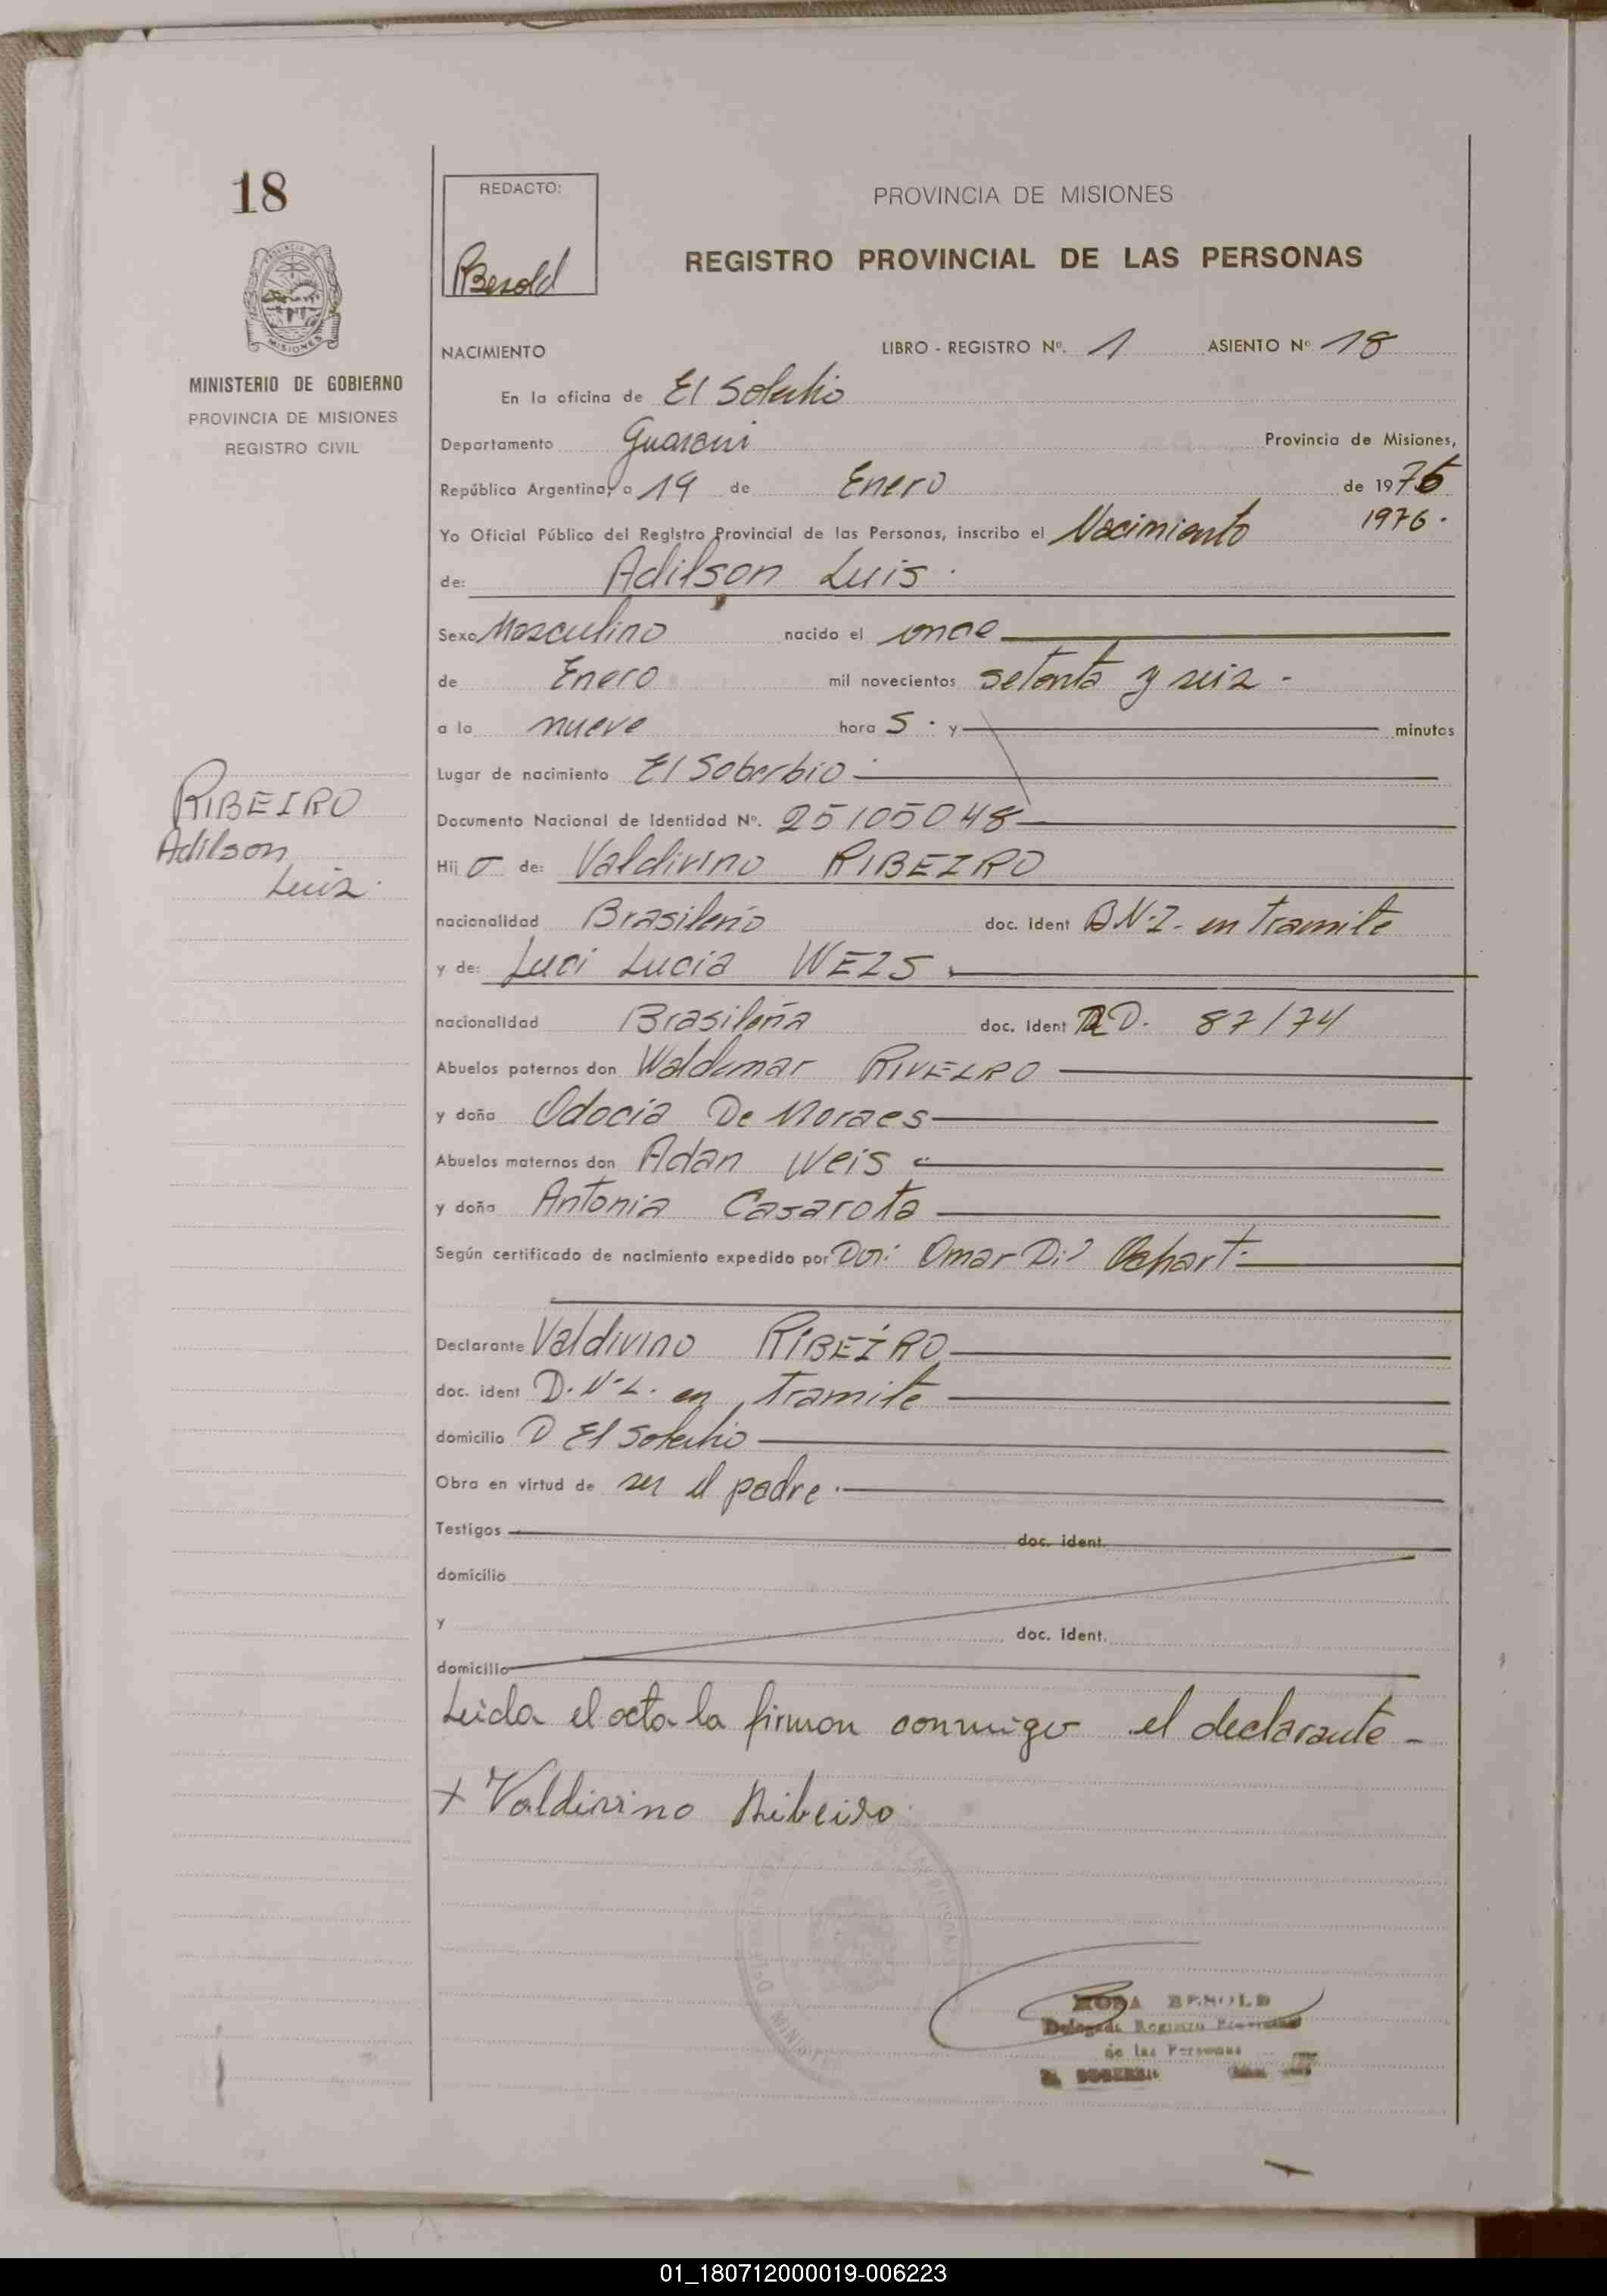 18
REDACTO:
RBesold
PROVINCIA DE MISIONES
REGISTRO PROVINCIAL DE LAS PERSONAS
MINISTERIO DE GOBIERNO
PROVINCIA DE MISIONES
REGISTRO CIVIL
NACIMIENTO
LIBRO - REGISTRO Nº. 1 ASIENTO Nº 18
En la oficina de El Soberbio
Departamento Guarani Provincia de Misiones,
República Argentina, a 19 de Enero de 1976
1976.
Yo Oficial Público del Registro Provincial de las Personas, inscribo el Nacimiento
de: Adilson Luis.
Sexo Masculino nacido el once
de Enero mil novecientos setenta y seis -
a la nueve hora s. y minutos
Lugar de nacimiento El Soberbio
Documento Nacional de Identidad Nº. 25105048
RIBEIRO
Adilson
Luis.
Hij o de: Valdivino RIBEIRO
nacionalidad Brasileño doc. ident D.N.I. en tramite
y de: Luci Lucia WEIS
nacionalidad Brasileña doc. ident D. 87/74
Abuelos paternos don Waldemar RIVEIRO
y doña Odocia De Moraes
Abuelos maternos don Adan Weis
y doña Antonia Casarota
Según certificado de nacimiento expedido por Omar
Declarante Valdivino RIBEIRO
doc. ident D.N.I. en tramite
domicilio El Soberbio
Obra en virtud de ser el padre.
Testigos doc. ident.
domicilio
y doc. ident.
domicilio
Leida el acta la firman conmigo el declarante -
+ Valdivino Ribeiro
ROSA BESOLD
Delegada Registro Provincial
de las Personas
EL SOBERBIO
01_180712000019-006223